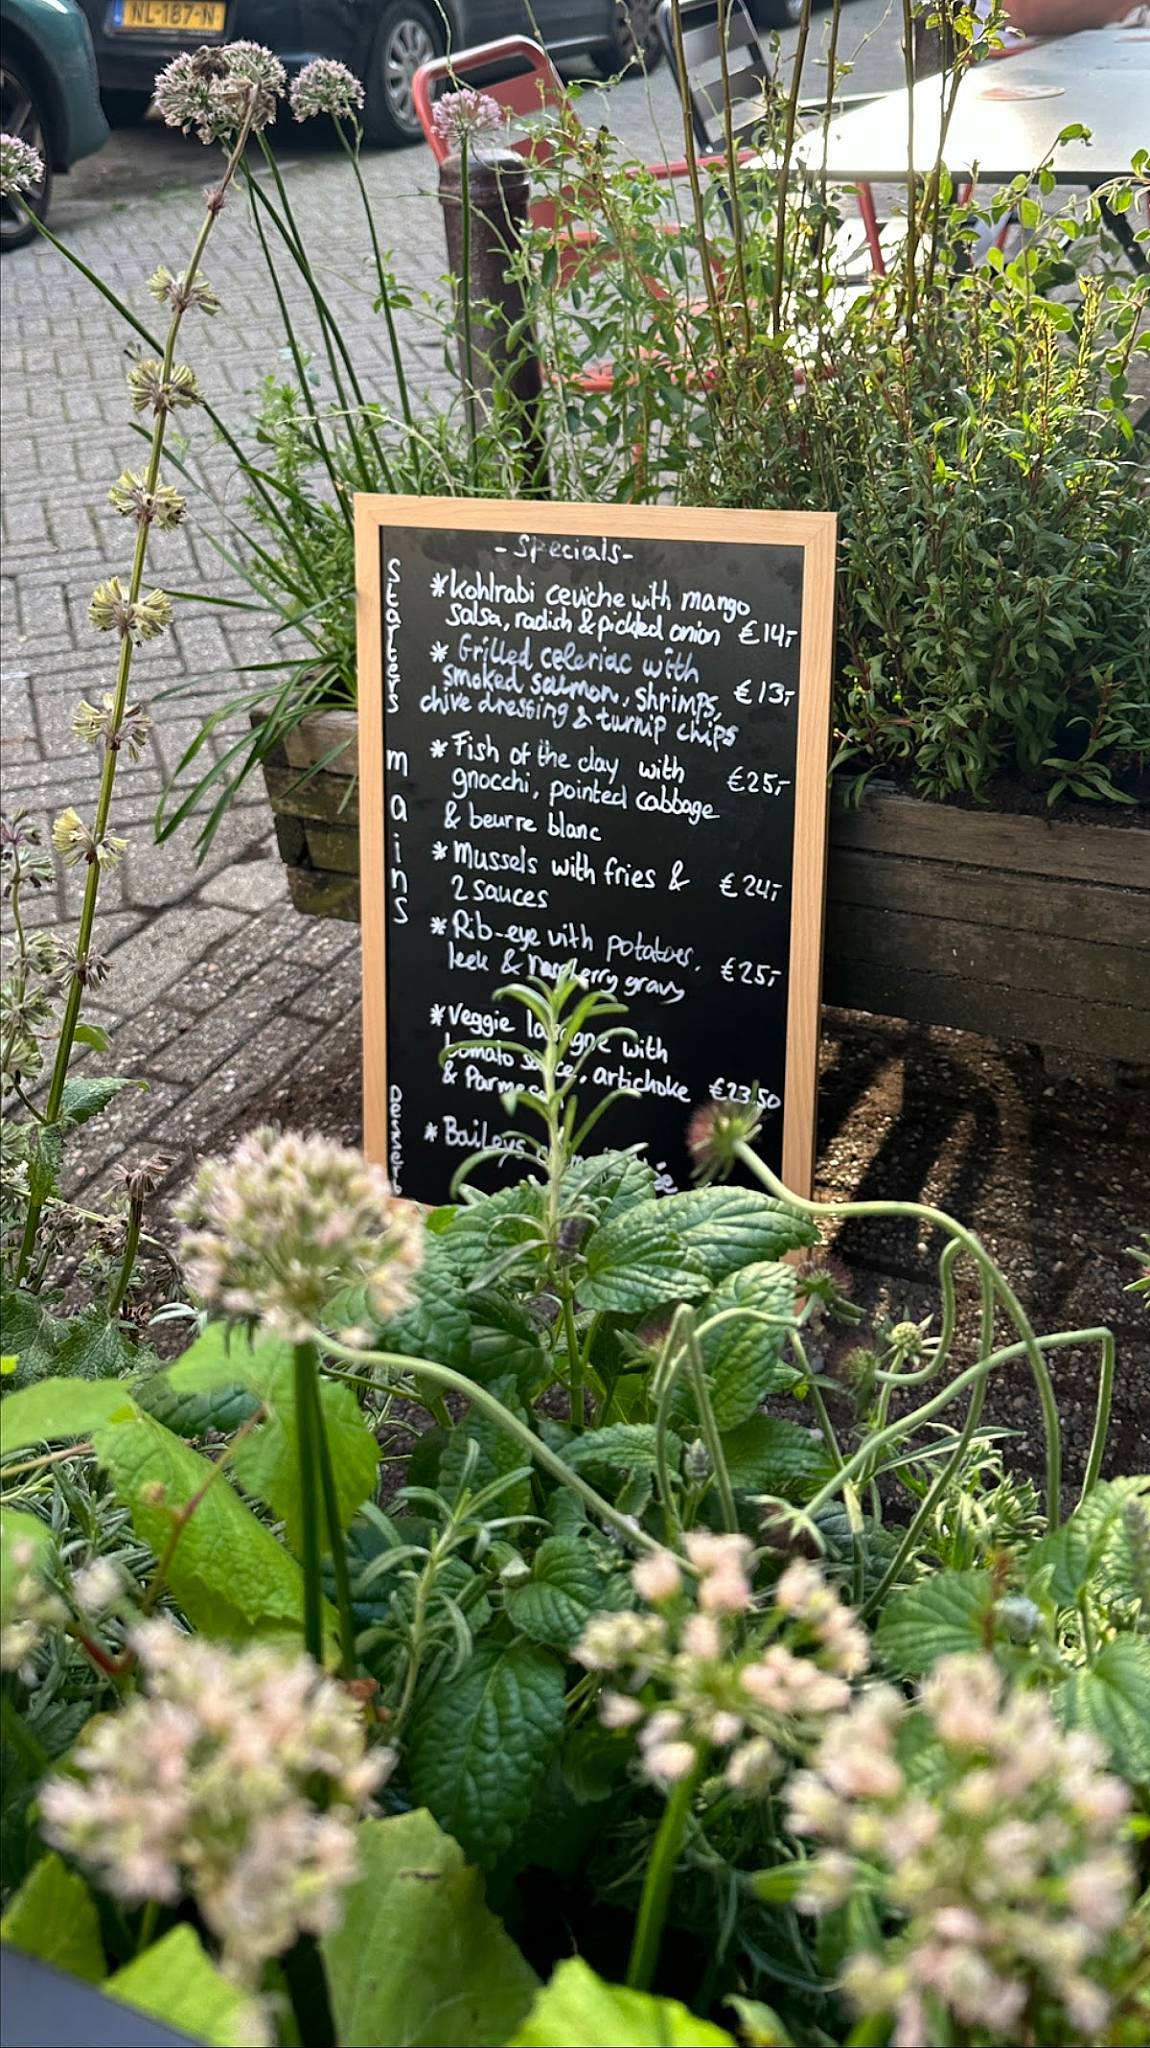 NL-187-N
- Specials -
Starters
* Kohlrabi ceviche with mango
salsa, radish & pickled onion €14,-
* Grilled celeriac with
smoked salmon, shrimps, €13,-
chive dressing & turnip chips
mains
* Fish of the day with €25,-
gnocchi, pointed cabbage
& beurre blanc
* Mussels with fries & €24,-
2 sauces
* Rib-eye with potatoes,
leek & raspberry gravy €25,-
* Veggie lasagne with
tomato sauce, artichoke €23,50
& Parmesan
Desserts
* Baileys